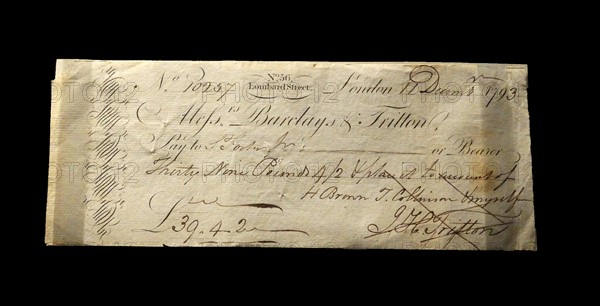 No. 10257 No. 56, London 11 Decemr. 1793
Lombard Street.
Messrs. Barclays & Tritton,
Pay to or Bearer
Thirty Nine Pounds 4/2 & place to Account of
H Brown T. Collinson & myself
£39.4.2 J H Tritton
PHOTO12